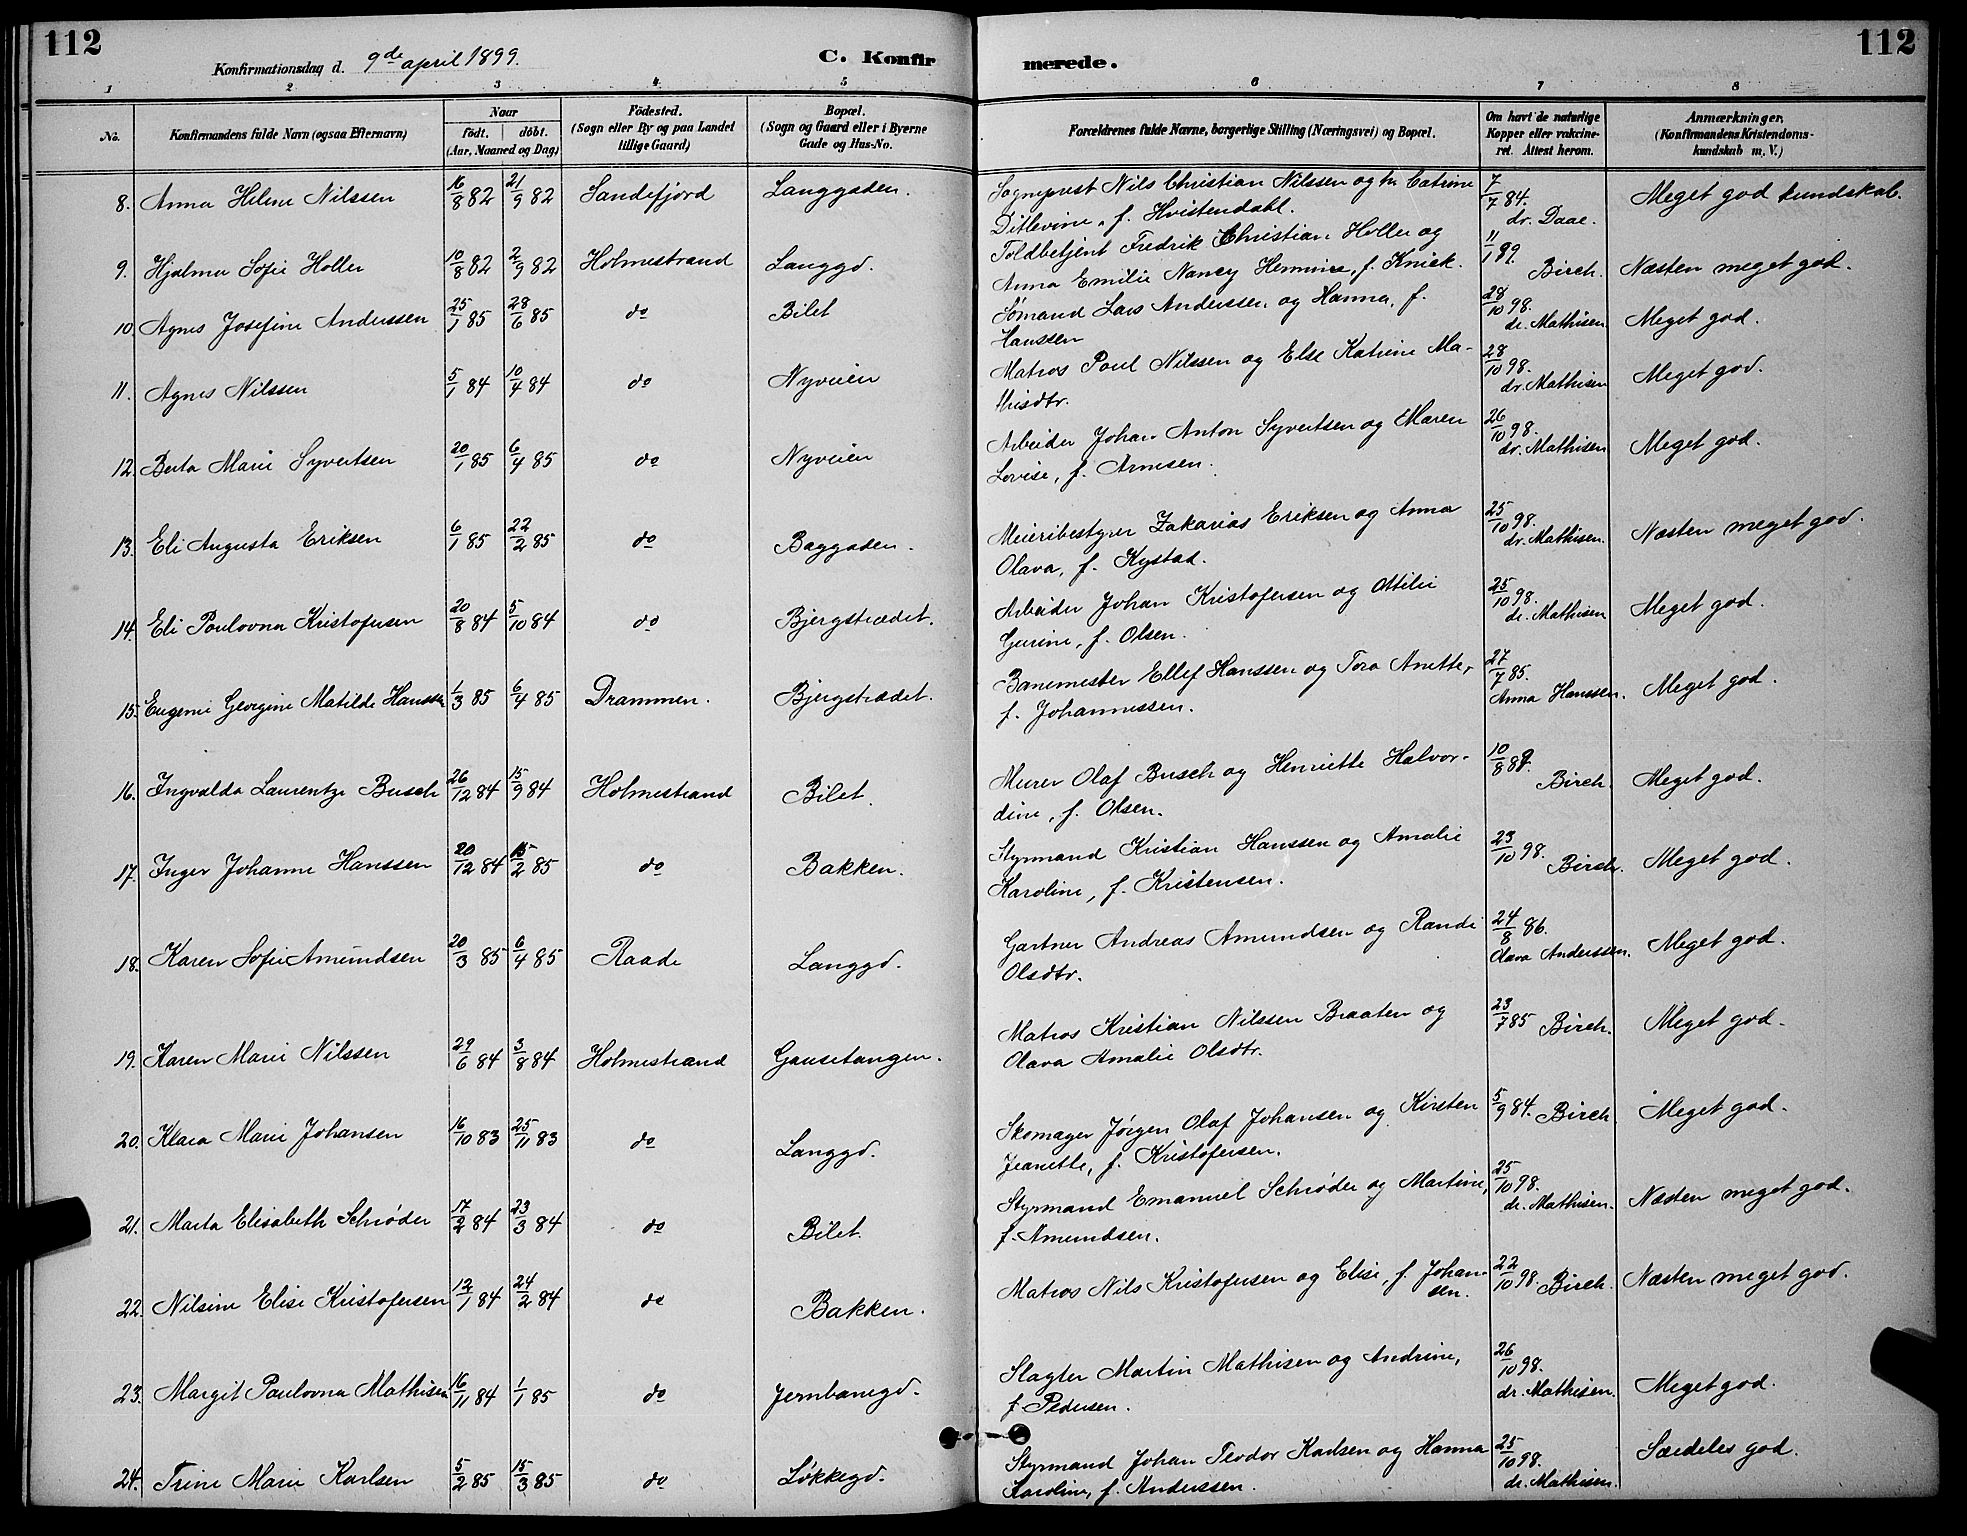 112
Konfirmationsdag d. 9de april 1899.
C. Konfirmerede.
112
1 2 3 4 5 6 7 8
No.
Konfirmandens fulde Navn (ogsaa Efternavn)
Naar
født. døbt.
(Aar, Maaned og Dag)
Fødested.
(Sogn eller By og paa Landet
tillige Gaard)
Bopæl.
(Sogn og Gaard eller i Byerne
Gade og Hus-No.
Forældrenes fulde Navne, borgerlige Stilling (Næringsvei) og Bopæl.
Om havt de naturlige
Kopper eller vakcine-
ret. Attest herom.
Anmærkninger,
(Konfirmandens Kristendoms-
kundskab m. V.)
8. Anna Helene Nilssen 16/8 82 21/9 82 Sandefjord Langgaden. Sogneprest Nils Christian Nilssen og hr. Catrine 7/7 84. Meget god kundskab.
Ditlevine, f. Hvistendahl. dr. Daae.
9. Hjalma Sofie Holler 10/8 82 2/9 82 Holmestrand Langgd. Toldbetjent Fredrik Christian Holler og 11/1 89. Næsten meget god.
Anna Emilie Nancy Hermine, f. Knick. Birch.
10. Agnes Josefine Anderssen 25/1 85 28/6 85 do Bilet Sømand Lars Anderssen og Hanna, f. 28/10 98. Meget god.
Hanssen dr. Mathisen
11. Agnes Nilssen 5/1 84 10/4 84 do Nyveien Matros Poul Nilssen og Else Katrine Ma- 28/10 98. Meget god.
thisdtr. dr. Mathisen
12. Berta Marie Syvertsen 20/1 85 6/4 85 do Nyveien Arbeider Johan Anton Syvertsen og Maren 26/10 98. Meget god.
Lovise, f. Arnesen. dr. Mathisen
13. Eli Augusta Eriksen 6/1 85 22/2 85 do Baggaden. Meieribestyrer Zakarias Eriksen og Anna 25/10 98. Næsten meget god.
Olava, f. Kystad. dr. Mathisen.
14. Eli Poulovna Kristofersen 20/8 84 5/10 84 do Bjergstrædet. Arbeider Johan Kristofersen og Otilie 25/10 98. Meget god.
Gurine, f. Olsen. dr. Mathisen
15. Eugenie Georgine Matilde Hanssen 1/3 85 6/4 85 Drammen. Bjergstrædet. Banemester Ellef Hanssen og Tora Anette, 27/7 85. Meget god.
f. Johannessen. Anna Hanssen.
16. Ingvalda Laurentze Busch 26/12 84 15/9 84 Holmestrand Bilet. Murer Olaf Busch og Henriette Halvor- 10/8 89. Meget god.
dine, f. Olsen. Birch.
17. Inger Johanne Hanssen 20/12 84 15/2 85 do Bakken. Styrmand Kristian Hanssen og Amalie 23/10 98. Meget god.
Karoline, f. Kristensen. Birch.
18. Karen Sofie Amundsen 20/3 85 6/4 85 Raade Langgd. Gartner Andreas Amundsen og Randi 24/8 86. Meget god.
Olsdtr. Olava Anderssen.
19. Karen Marie Nilssen 29/6 84 3/8 84 Holmestrand Gausetangen. Matros Kristian Nilssen Braaten og 23/7 85 Birch. Meget god.
Olava Amalie Olsdtr.
20. Klara Marie Johansen 16/10 83 25/11 83 do Langgd. Skomager Jørgen Olaf Johansen og Kirsten 5/9 84. Birch. Meget god.
Jeanette, f. Kristofersen.
21. Marta Elisabeth Schrøder 17/2 84 23/3 84 do Bilet. Styrmand Emanuel Schrøder og Martine, 25/10 98. Næsten meget god.
f. Amundsen. dr. Mathisen.
22. Nilsine Elise Kristofersen 12/1 84 24/2 84 do Bakken. Matros Nils Kristofersen og Elise, f. Johan- 22/10 98. Birch. Næsten meget god.
sen.
23. Margit Paulovna Mathisen 16/11 84 1/1 85 do Jernbanegd. Slagter Martin Mathisen og Andrine, 26/10 98. Meget god.
f. Pedersen. dr. Mathisen.
24. Trine Marie Karlsen 5/2 85 15/3 85 do Løkkegd. Styrmand Johan Teodor Karlsen og Hanna 25/10 98. Særdeles god.
Karoline, f. Anderssen. dr. Mathisen.